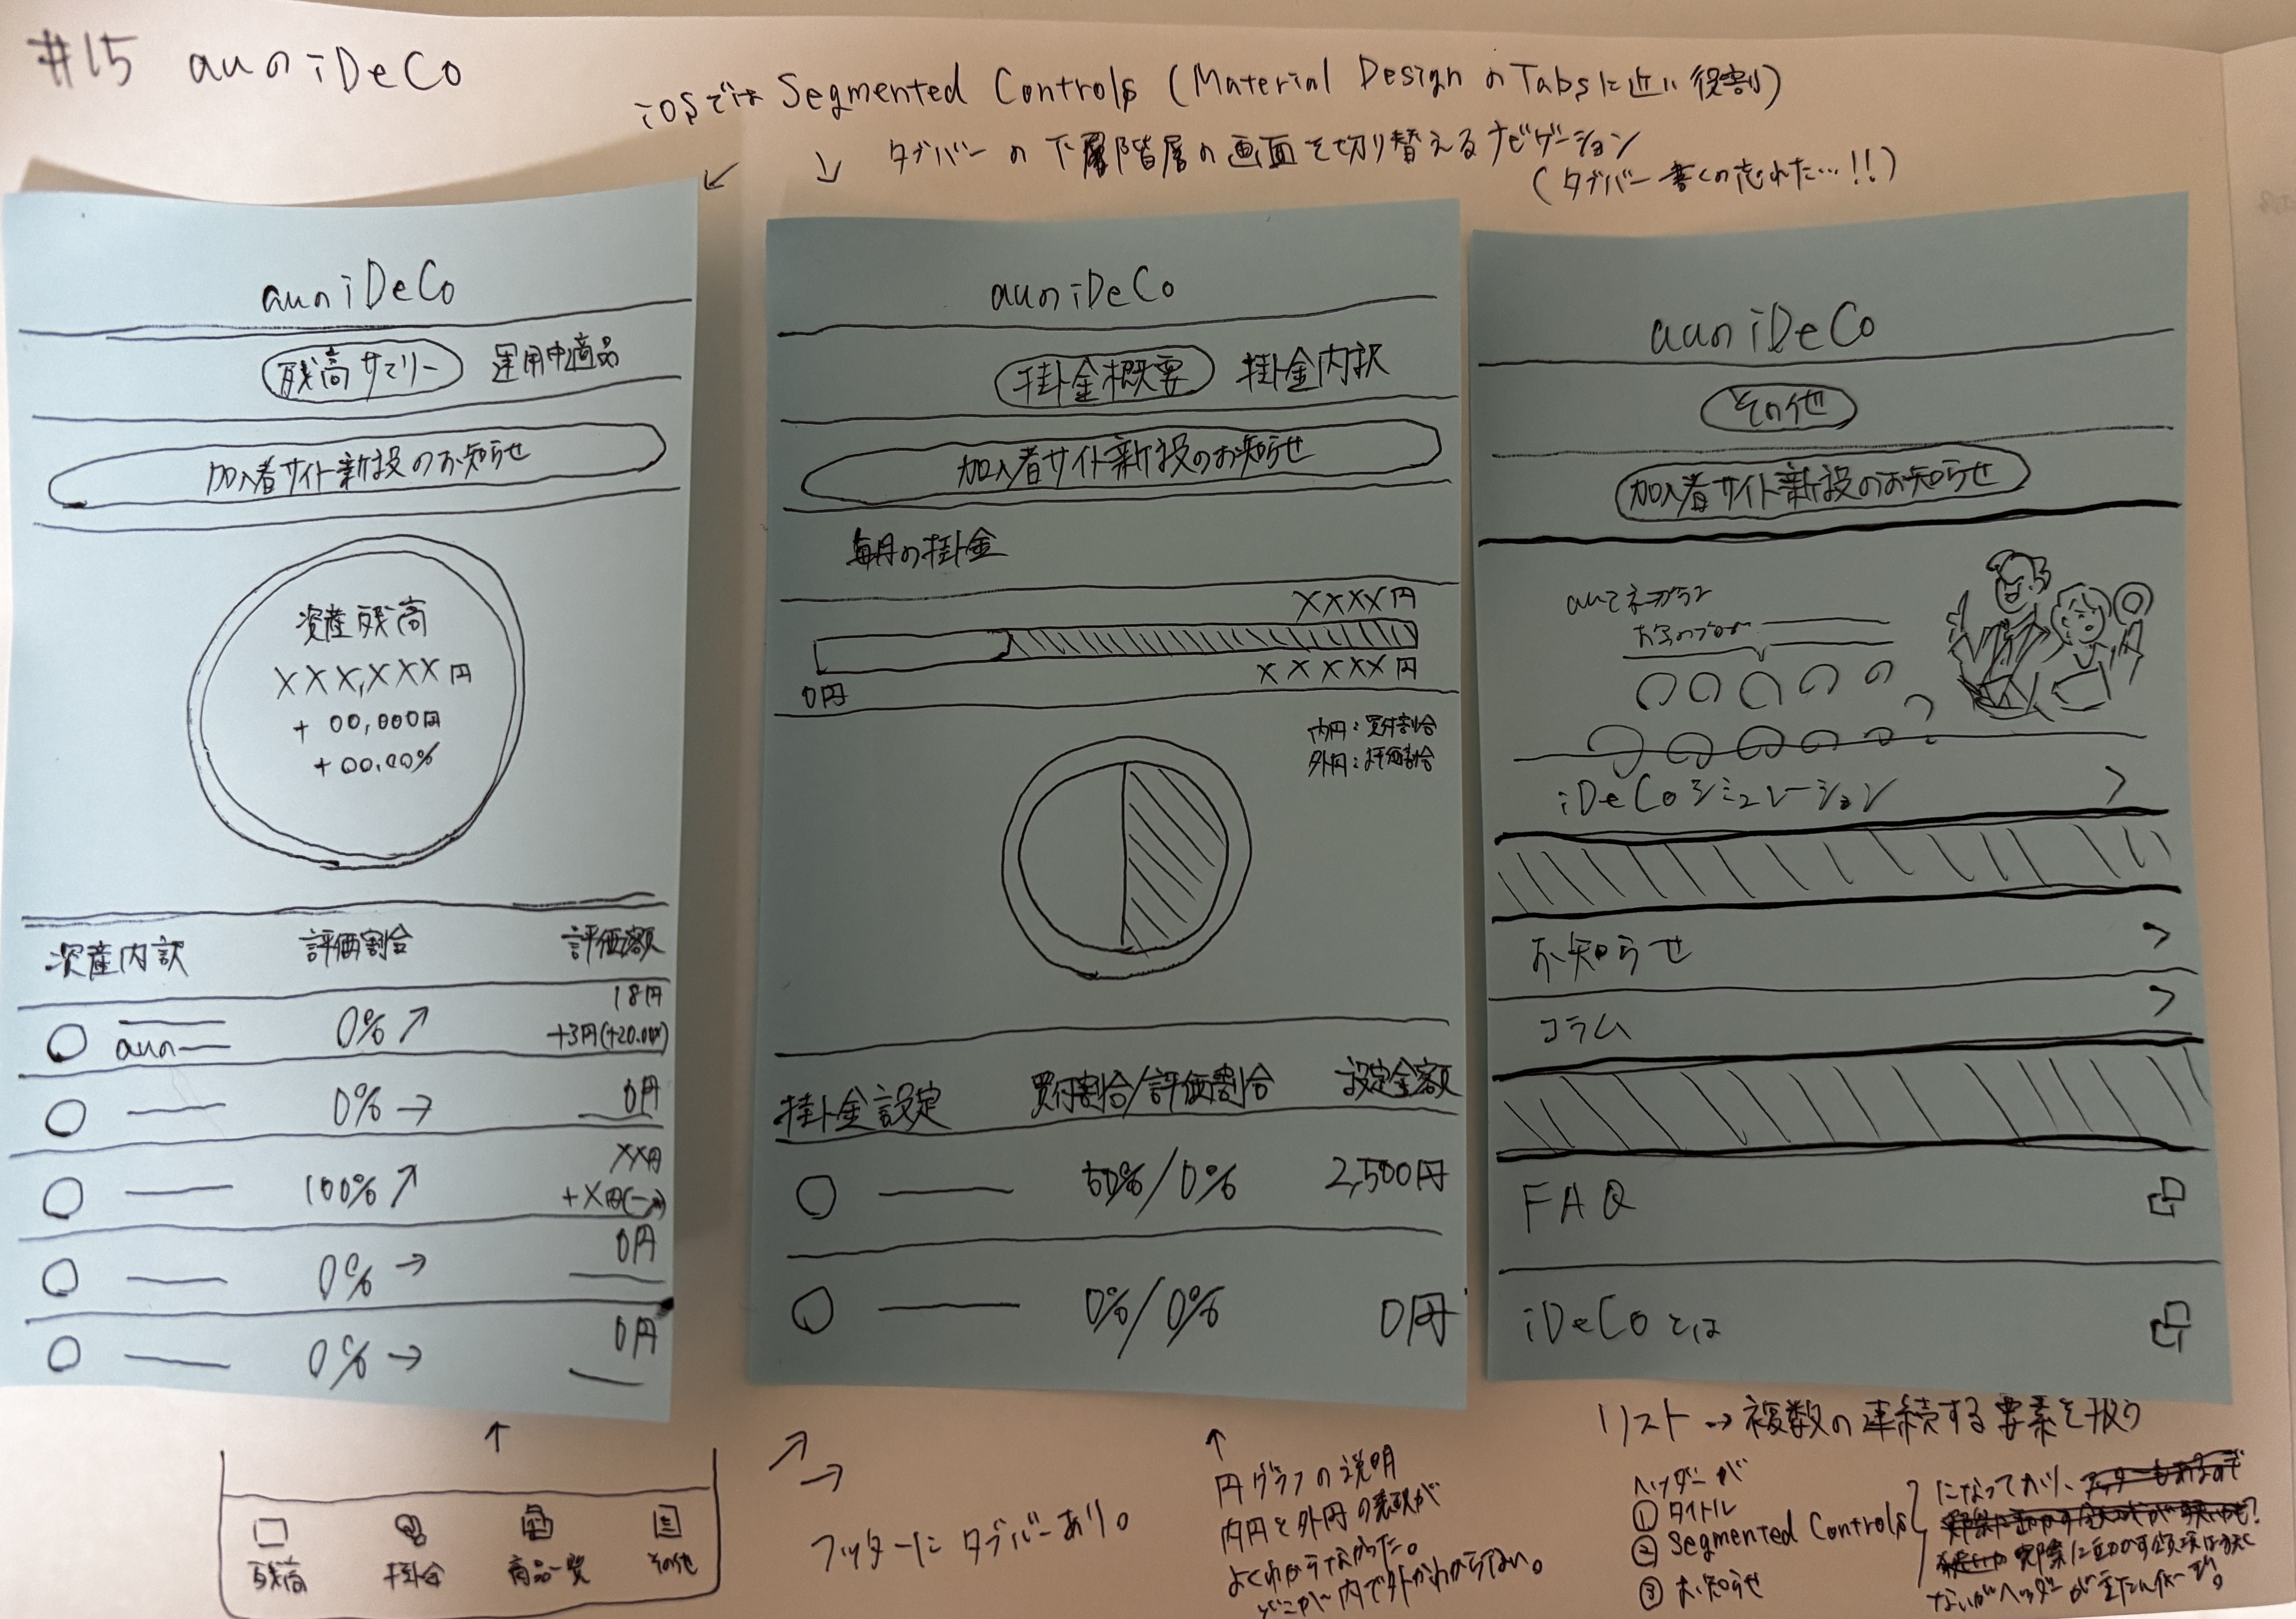 #15 auのiDeCo
iOSでは Segmented Controls (Material Design のTabsに近い役割)
タブバーの下層階層の画面を切り替えるナビゲーション
(タブバー書くの忘れた…!!)
auのiDeCo
残高サマリー 運用中商品
加入者サイト新設のお知らせ
資産残高
XXX,XXX円
+ 00,000円
+00.00%
資産内訳 評価割合 評価額
auの 0% ↗ 18円
+3円(+20.00%)
0% → 0円
100% ↗ XX円
+X円(
0% → 0円
0% → 0円
残高 掛金 商品一覧 その他
auのiDeCo
掛金概要 掛金内訳
加入者サイト新設のお知らせ
毎月の掛金
XXXX円
0円 XXXXX円
内円:買付割合
外円:評価割合
掛金設定 買付割合/評価割合 設定金額
50%/0% 2,500円
0%/0% 0円
フッターにタブバーあり。
円グラフの説明
内円と外円の表現が
よくわからなかった。
どこが内で外かわからない。
auのiDeCo
その他
加入者サイト新設のお知らせ
iDeCoシミュレーション >
お知らせ >
コラム >
FAQ
iDeCoとは
リスト→複数の連続する要素を扱う
ヘッダーが
① タイトル
② Segmented Controls
③ お知らせ
になっており、